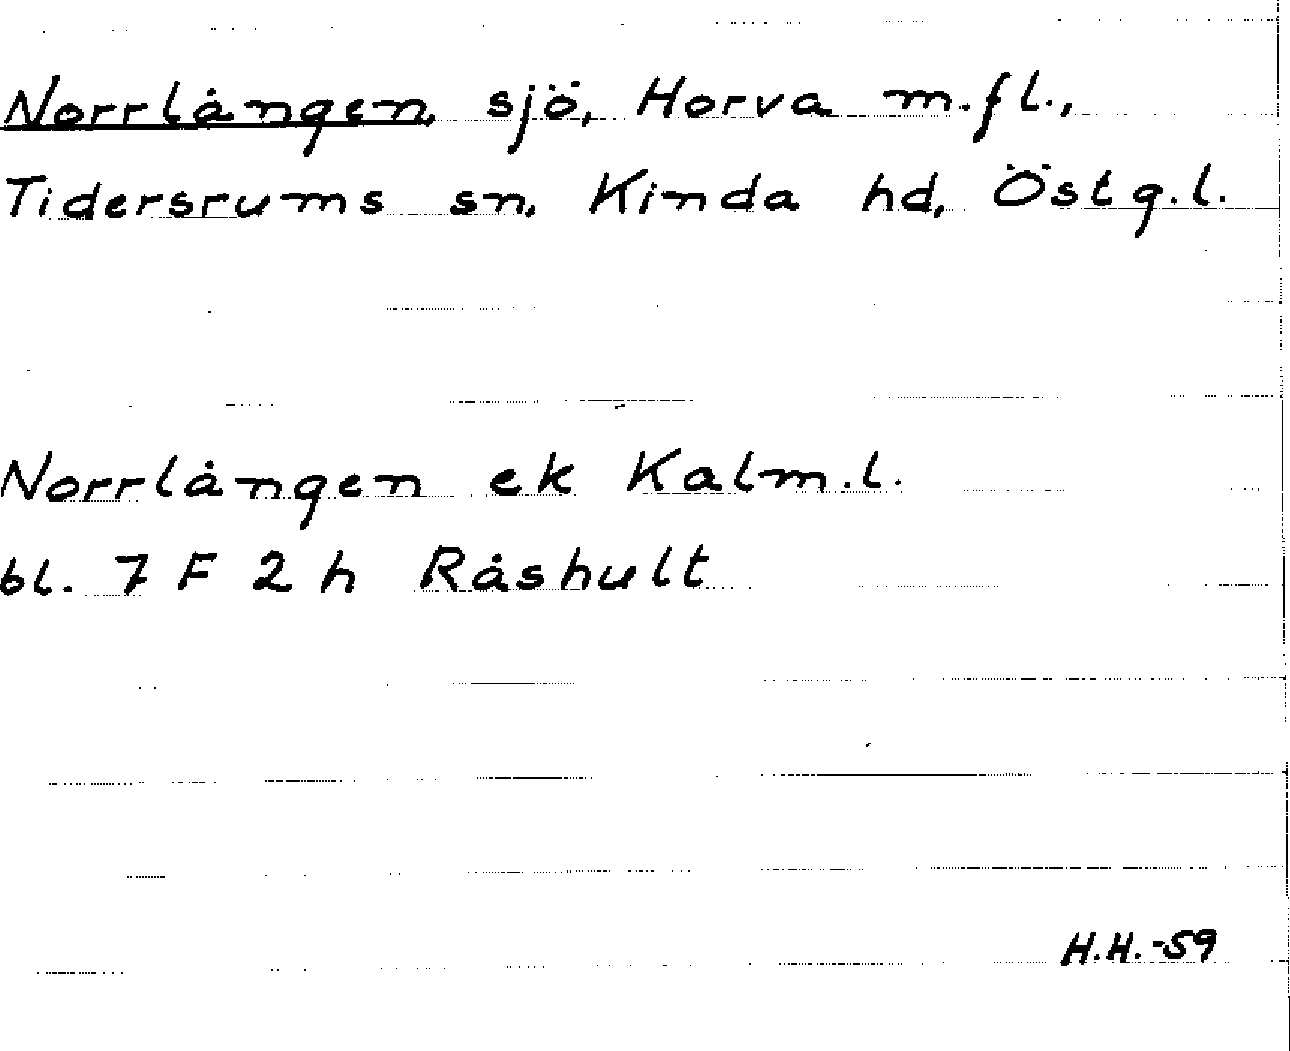 Norrlången, sjö, Horva m.fl.,
Tidersrums sn, Kinda hd, Östg.l.
Norrlången ek Kalm.l.
bl. 7 F 2 h Råshult
H.H.-59